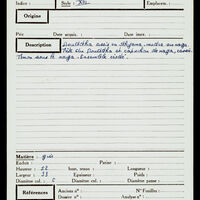 Indice : Style : XIII Emplacem. :
Origine
Pce Date acquis. : Date inv. :
Description Bouddha assis en dhyana, mudra au naga
Tête du Bouddha et capuchon de naga, cassés.
Tronc sans le naga. Ensemble érodé.
Matière : grès
Enduit : Patine :
Hauteur : 52 haut. tenon : Longueur :
Largeur : 33 Epaisseur : Diamètre :
Diamètre col. : Diamètre panse :
Références Anciens n° : N° Fouilles :
Dossier n° : Analyse n° :